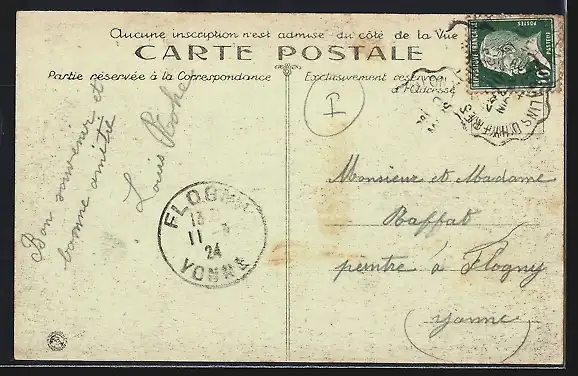 Aucune inscription n'est admise du côté de la Vue
CARTE POSTALE
Partie réservée à la Correspondance
Exclusivement réservé
à l'Adresse
RÉPUBLIQUE FRANÇAISE
POSTES
PASTEUR
10
I
Bon souvenir et
bonne amitié
Louis
FLOGNY
13
11
24
YONNE
Monsieur et Madame
Raffat
peintre à Flogny
Yonne